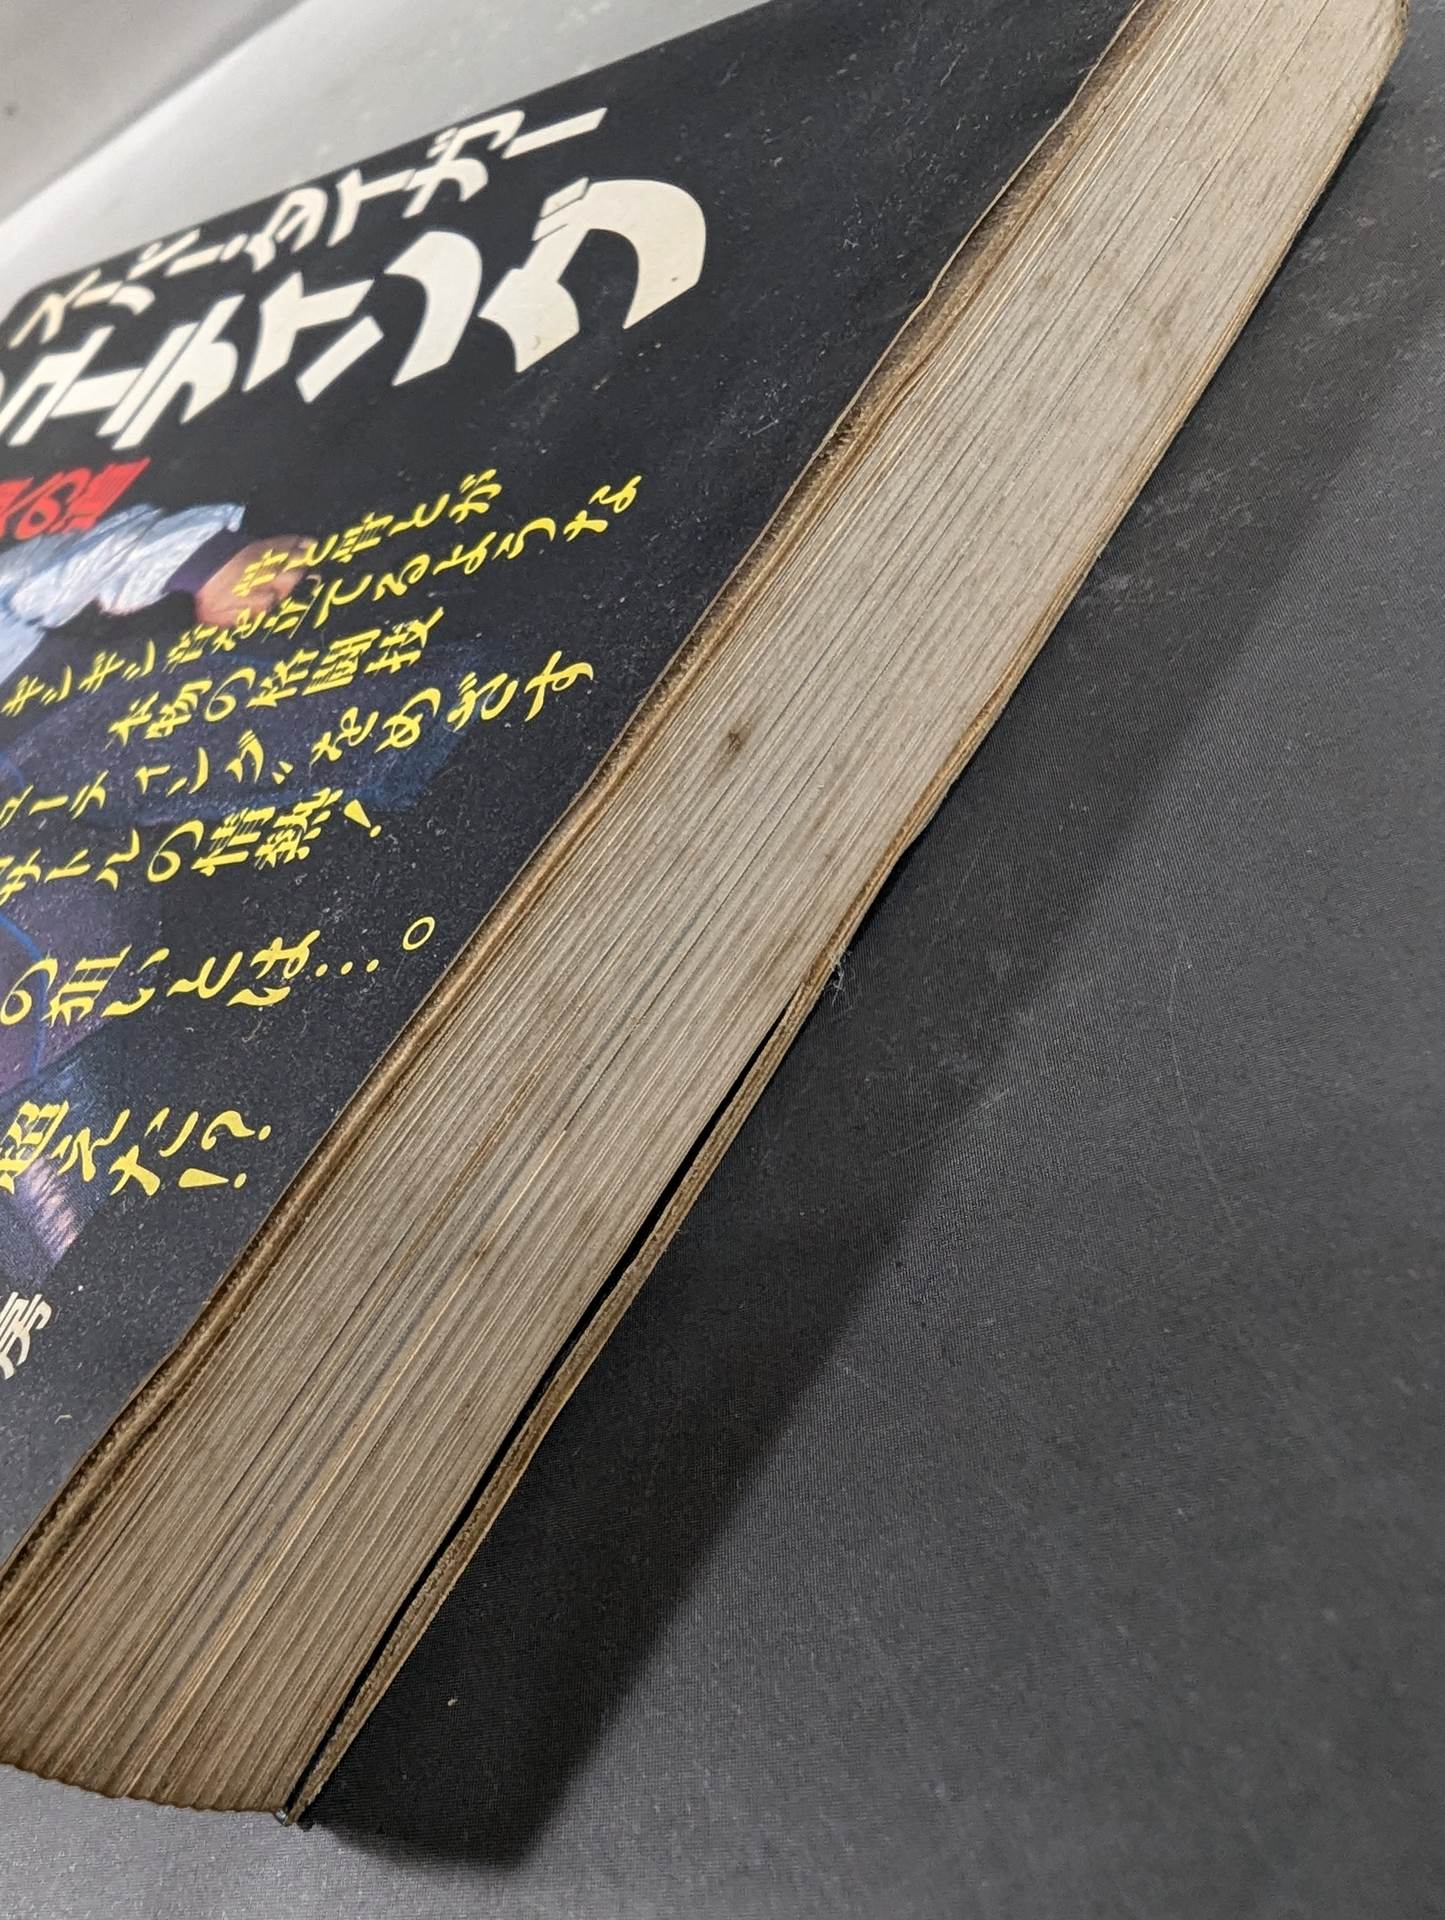 スーパー・タイガー
シューティング
骨と骨とが
ギンギン音を立てるような
本物の格闘技
ューティング〟をめざす
サトルの情熱！
の狙いとは…。
超えた!?
房